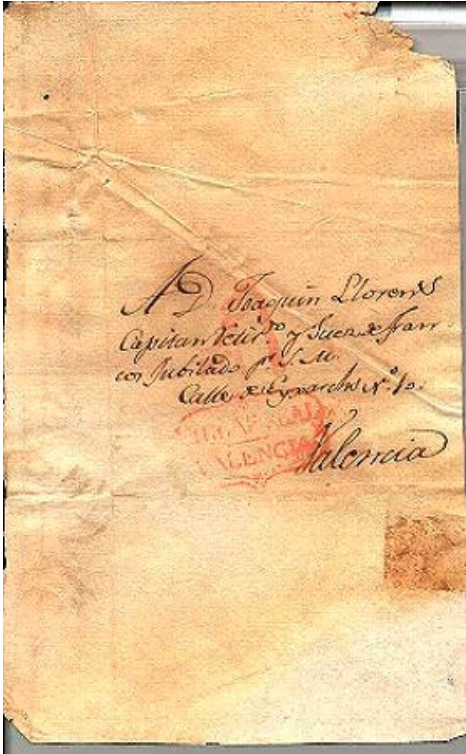 A D. Joaquin Llorens
Capitan Retir.do y Juez de fran-
cos Jubilado pr. S. M.
Calle de Eynarchs N.º 10.
VILLARREAL
VALENCIA
Valencia